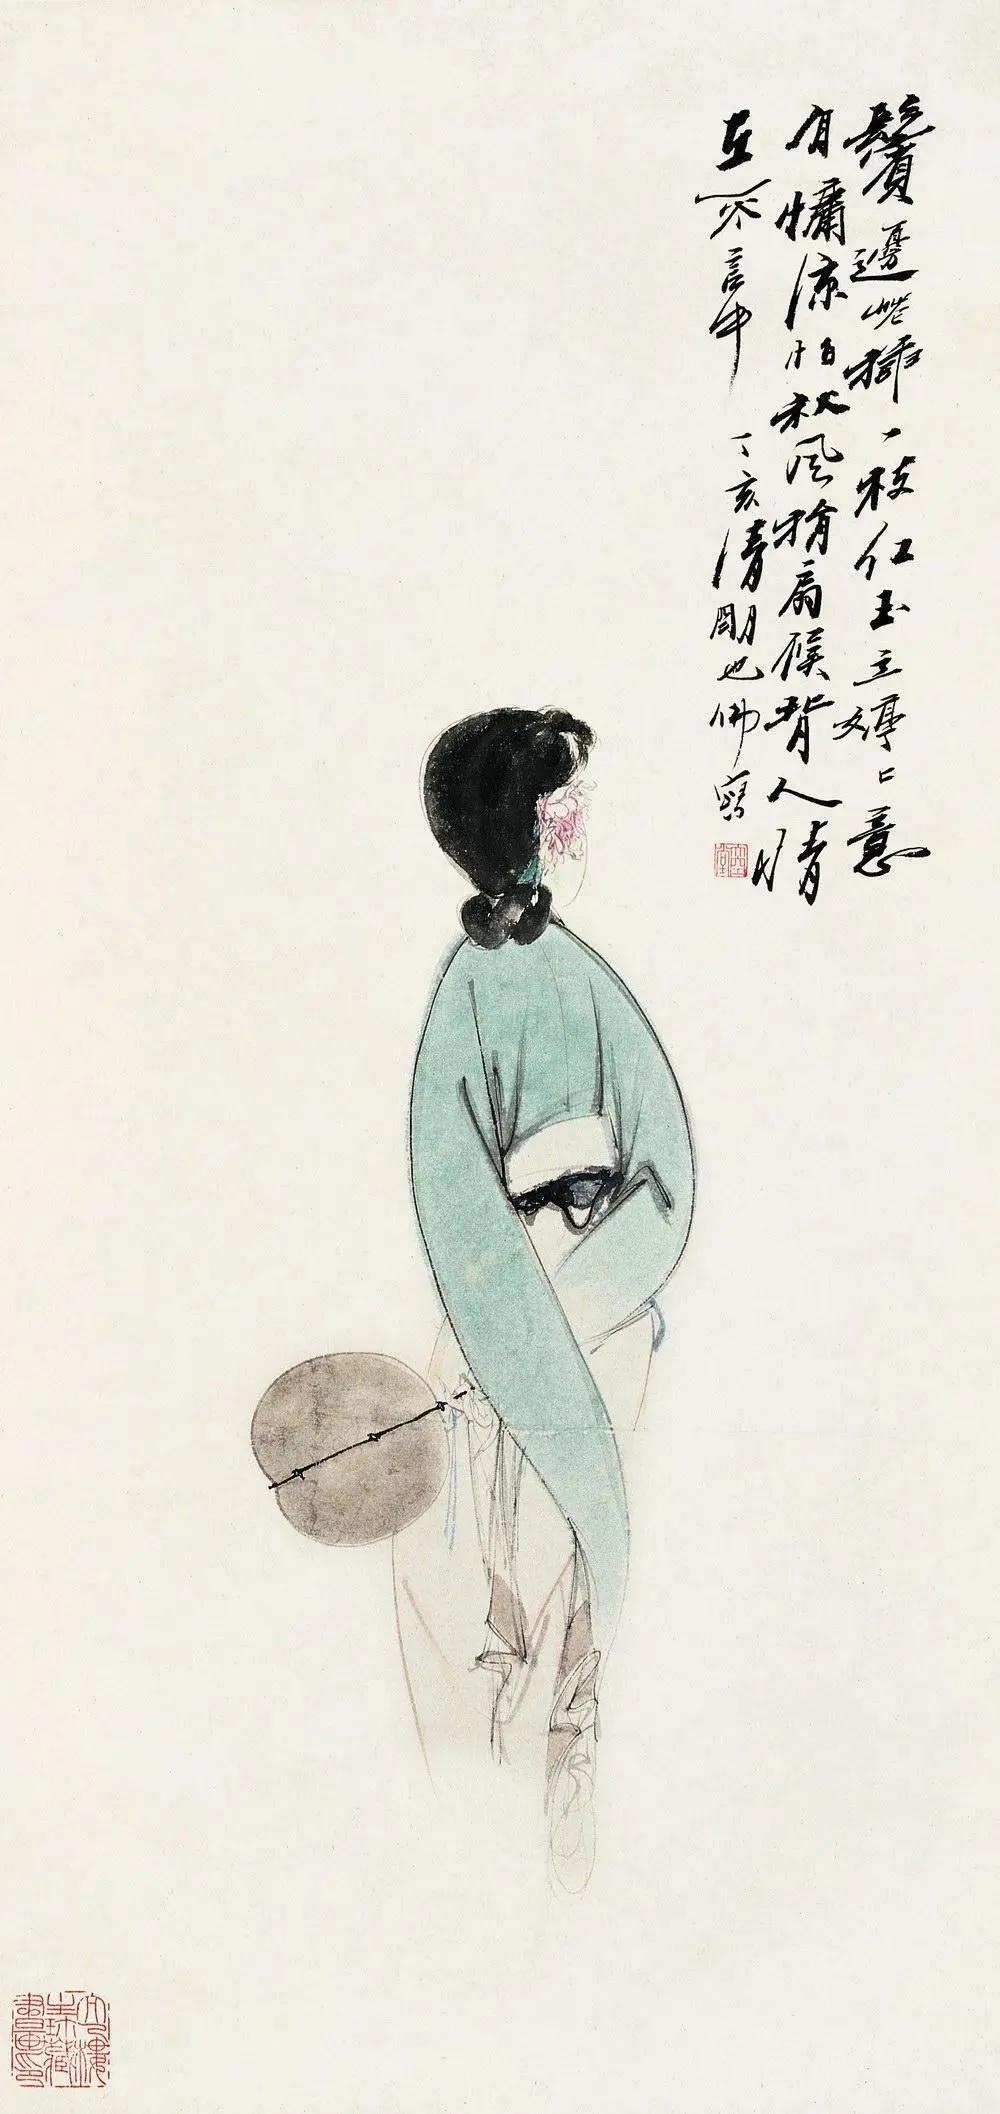 鬢邊插一枝紅玉立婷〻意
有慵涼怕秋風捐扇候背人情
在不言中 丁亥清明也佛寫